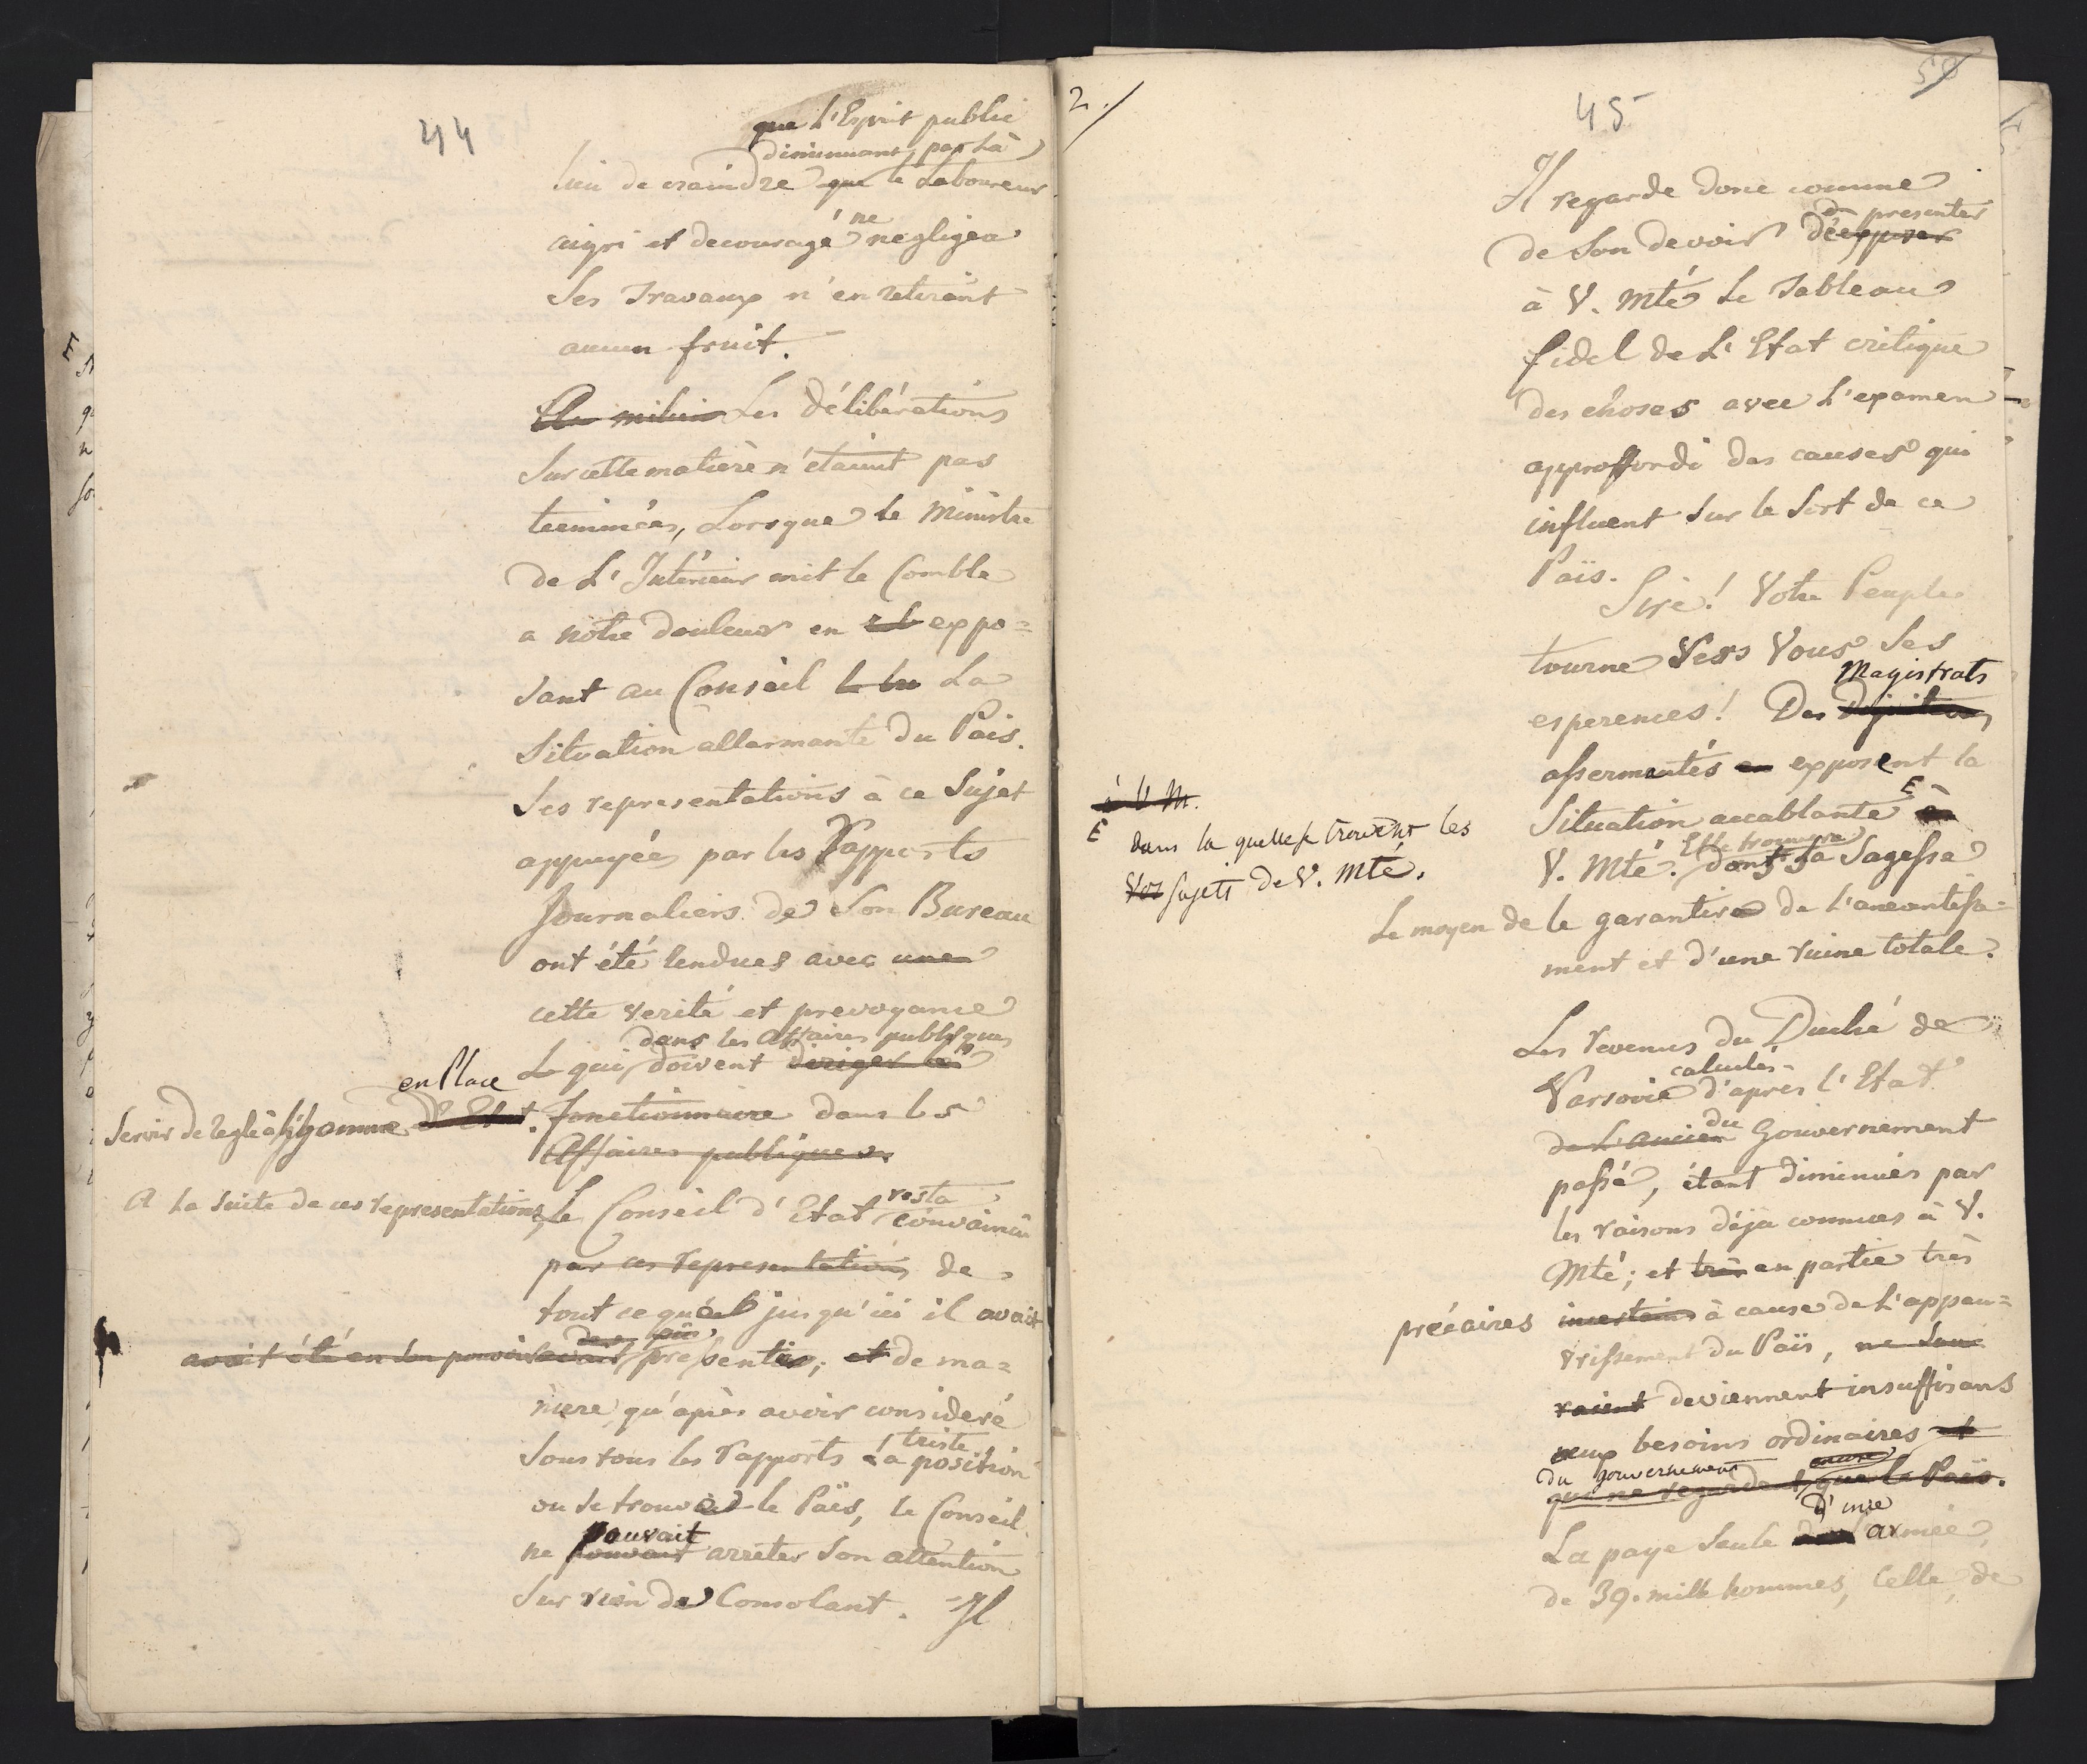 44
que L'Esprit public
diminuant, par là
lieu de craindre que le Laboureur
aigri et decouragé ne negligea
ses Travaux n'en retirant
aucun fruit.
Au milieu Les délibérations
sur cette matière n'étaient pas
terminées, Lorsque le Ministre
de L'Intérieur mit le Comble
a notre douleur en expo=
sant au Conseil La
Situation allarmante du Païs.
Ses representations à ce Sujet
appuyées par les Rapports
Journaliers de Son Bureau
ont été rendues avec une
cette verité et prevoyance
dans les Affaires publiques
qui doivent diriger le
en Place
servir de regle à l'homme d'Etat. fonctionnaire dans les
Affaires publiques.
A la suite de ces representations, Le Conseil d'Etat resta convaincu
par ces representations de
tout ce que jusqu'ici il avait
avait été en son pouvoir pressenti; et de ma=
niere, qu'après avoir consideré
sous tous les rapports la triste position
ou se trouve le Païs, le Conseil
pouvait
ne pouvant arrêter son attention
sur rien de Consolant. Il
2./
45
50
Il regarde donc comme
de presenter
de Son devoir d'exposer
à V. Mté le Tableau
fidel de L'Etat critique
des choses avec L'examen
approffondi des causes qui
influent sur le sort de ce
Païs.
Sire! Votre Peuple
tourne Vers Vous ses
Magistrats
esperences! Des Députés
assermentés en exposent la
Situation accablante à
à V. M.
dans la quelle se trouvent les
Vos sujets de V. Mté.
V. Mté. Elle trouvera dans sa Sagesse
Le moyen de le garantir de l'aneantisse=
ment et d'une ruine totale.
Les revenus du Duché de
calculés
Varsovie d'après l'Etat
du
de L'ancien Gouvernement
passé, étant diminués par
les raisons déja connues à V.
Mté; et très en partie très
précaires incertains à cause de L'appau=
vrissement du Païs, ne sau
raient deviennent insuffisans
aux besoins ordinaires et
du gouvernement
qui ne regardent que le Païs.
d'une
La paye seule armée,
de 39. mille hommes, Celle, de